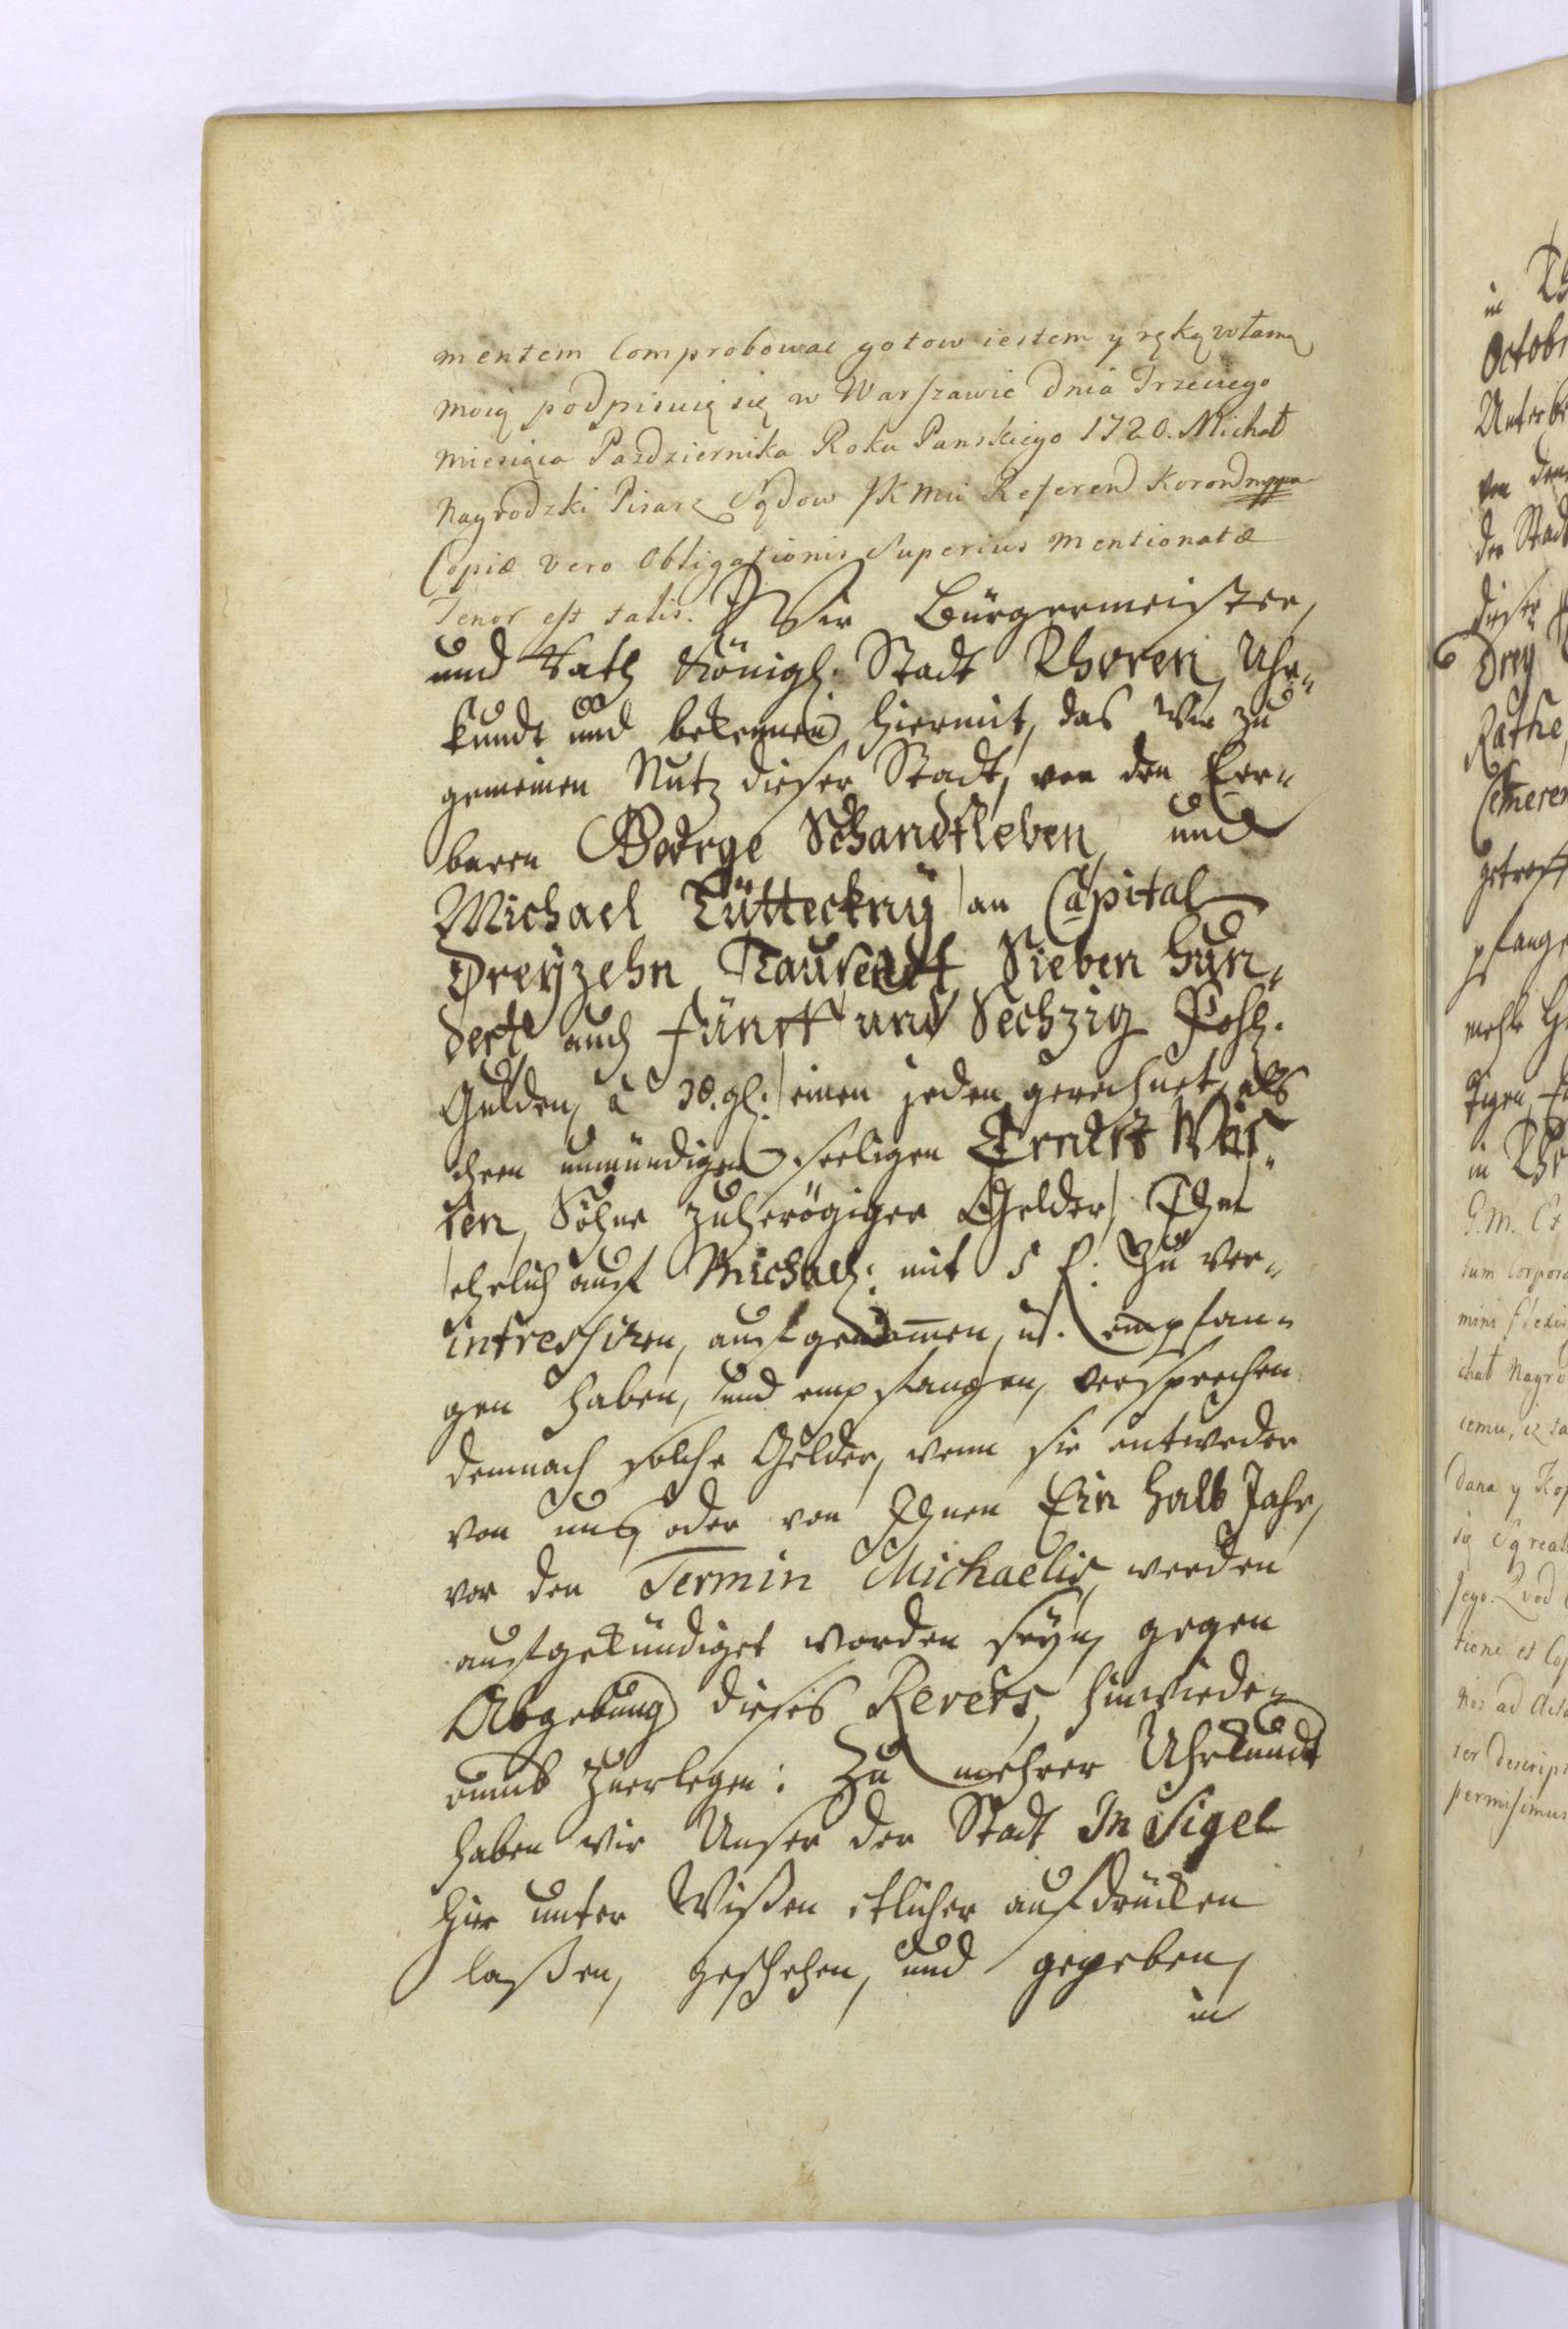 mentem comprobowac gotow iestem y ręką własną
moią podpisuię się w Warszawie Dnia Trzeciego
Miesiąca Pazdziernika Roku Panskiego 1720. Michał
Nagrodzki Pisarz Sądow JKMci Referend Korond mppa
Copiæ vero Obligationis Superius mentionatæ
Tenor est talis. Wir Bürgermeister,
und Rath Königl. Stadt Thoren, Uhr„
kundt und bekennen hiermit, das wir zu
gemeinen Nutz dieser Stadt, von den Eer„
baren George Schandtleben, und
Michael Tütteckny an Capital
Dreyzehn Tausendt Sieben hun„
dert auch fünff und Sechzig Pohl.
Gulden, à 30. gl. einen jeden gerechnet, als
dem unmündigen seeligen Ernst
Söhne Gelder,
ehrlich auf Michael: mit 5 f: zu ver„
intressiren, aufgenommen, u. empfan„
gen haben, und empfangen, versprechen
demnach solche Gelder, wenn sie entweder
von uns oder von Ihnen Ein halb Jahr,
vor den Termin Michaelis, werden
aufgekündiget worden seyn, gegen
Abgebung dieses Revers, hinwieder„
umb zuerlegen: Zu mehrer Uhrkundt
haben wir Unser der Stadt In Sigel
hier unter Wißen etlicher aufdrücken
laßen, geschehen, und gegeben,
in
in Th
Octob
Unter
von den
der Stadt
dieser
Drey
Rathe
getroff
pfange
mehr
in Th
G.M. Et
sum corpora
chał Nagro
iemu, iz ta
dana y Kop
tione et Co
nos ad Acta
ter descript
permisimus